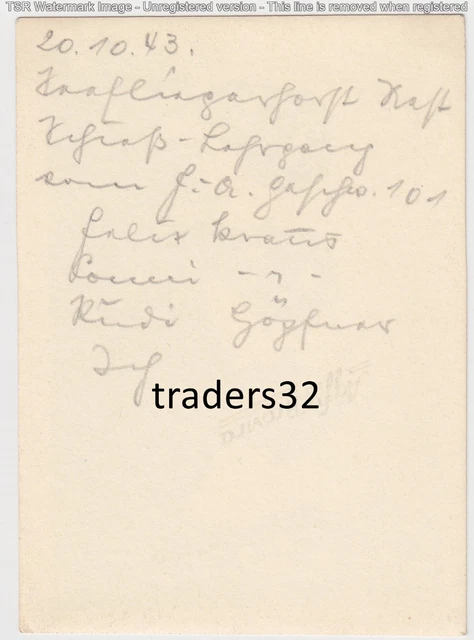 TSR Watermark Image - Unregistered version - This line is removed when registered
20.10.43.
Schieß-Lehrgang
vom J.A. Geschw. 101
Felix Kraus
Sonni - " -
Rudi
Ich
traders32